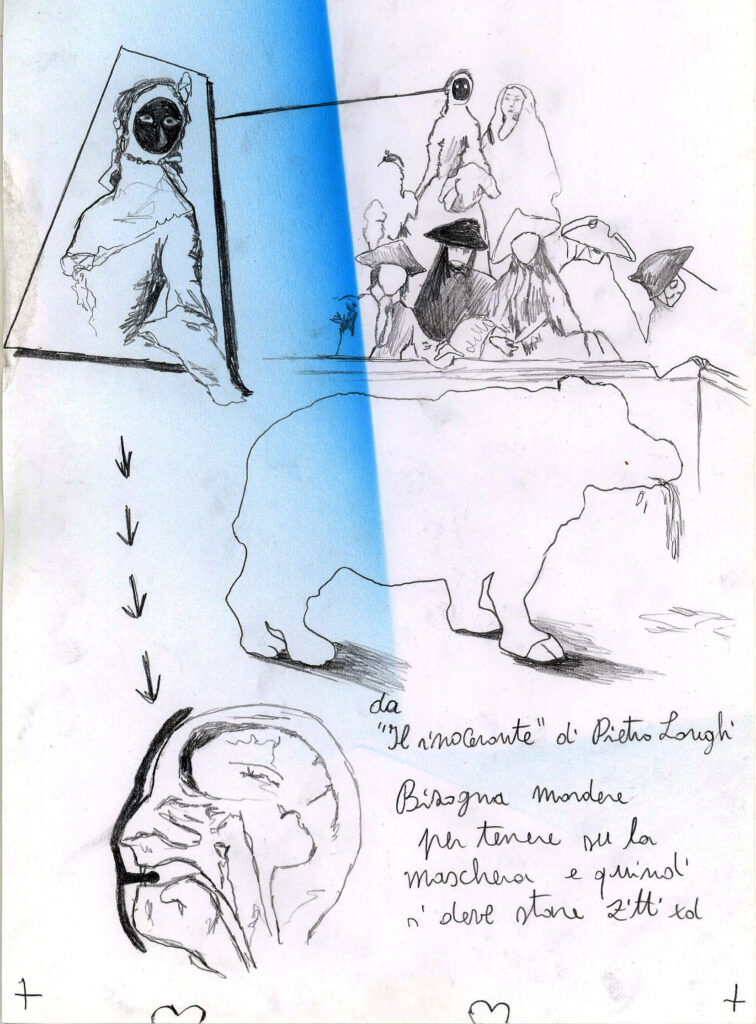 da
"Il rinoceronte" di Pietro Longhi
Bisogna mordere
per tenere su la
maschera e quindi
si deve stare zitti xd